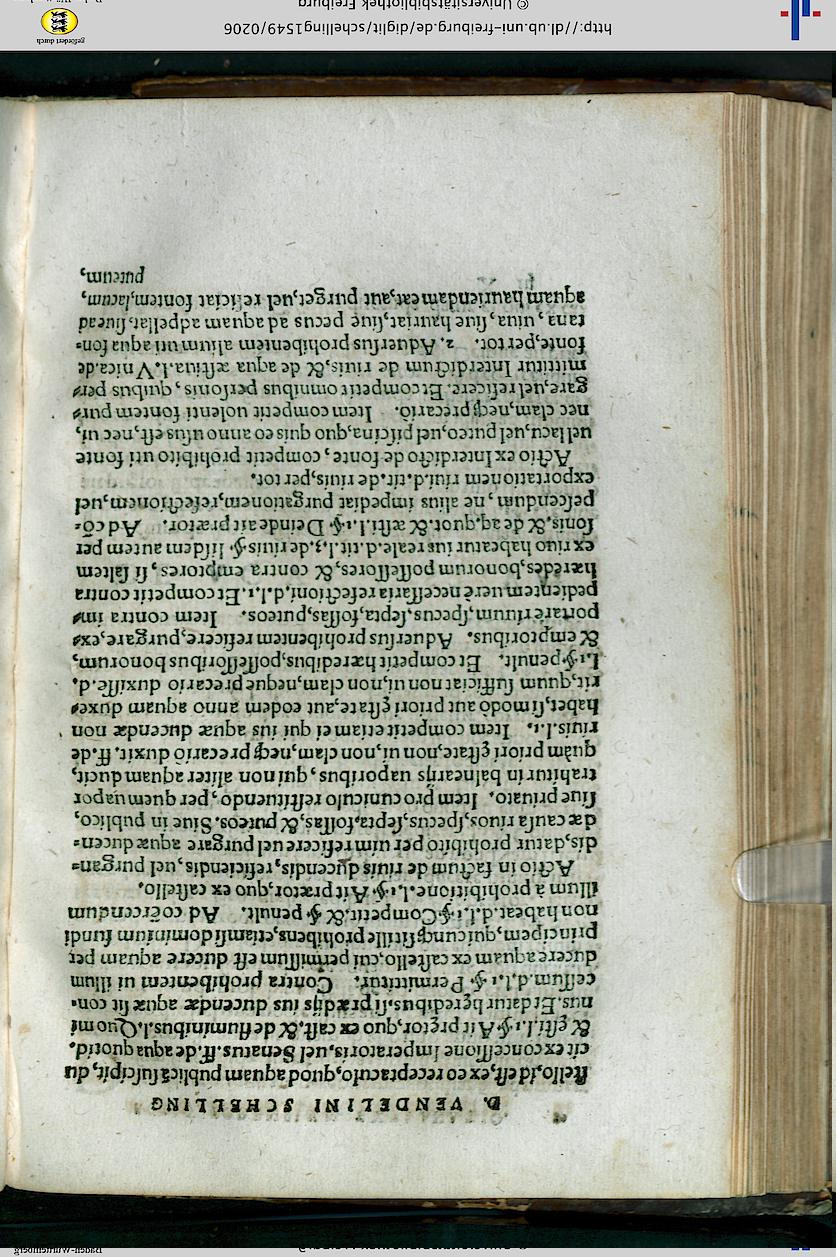 D. VENDELINI SCHELLING
stello, id est, ex eo receptaculo, quod aquam publicã suscipit, du
cit ex concessione Imperatoris, uel Senatus. ff. de aqua quotid.
& ęsti. l. 1. §. Ait prętor, quo ex cast. & de fluminibus. l. Quo mi
nus. Et datur hęredibus, si prædijs ius ducendæ aquæ sit con-
cessum. d. l. 1. §. Permittitur. Contra prohibentem ui illum
ducere aquam ex castello, cui permissum est ducere aquam per
principem, quicunq; sit ille prohibens, etiamsi dominium fundi
non habeat. d. l. 1. §. Competit. & §. penult. Ad coërcendum
illum à prohibitione. l. 1. §. Ait prætor, quo ex castello.
Actio in factum de riuis ducendis, reficiendis, uel purgan-
dis, datur prohibito per uim reficere uel purgare aquæ ducen-
dæ causa riuos, specus, septa, fossas, & puteos. Siue in publico,
siue priuato. Item pro cuniculo restituendo, per quem uapor
trahitur in balnearijs uaporibus, qui non aliter aquam ducit,
quàm priori ęstate, non ui, non clam, neq; precario duxit. ff. de
riuis. l. 1. Item competit etiam ei qui ius aquæ ducendæ non
habet, si modò aut priori ęstate, aut eodem anno aquam duxe-
rit, quum sufficiat non ui, non clam, neque precario duxisse. d.
l. 1. §. penult. Et competit hæredibus, possessoribus bonorum,
& emptoribus. Aduersus prohibentem reficere, purgare, ex-
portare riuum, specus, septa, fossas, puteos. Item contra im-
pedientem uerè necessaria refectioni. d. l. 1. Et competit contra
hæredes, bonorum possessores, & contra emptores, si saltem
ex riuo habeatur ius reale. d. tit. l. 3. de riuis §. Iisdem autem per
sonis. & de aq. quot. & æsti. l. 1. §. Deinde ait prætor. Ad cõ-
pescendum, ne alius impediat purgationem, refectionem, uel
exportationem riui. d. tit. de riuis, per tot.
Actio ex Interdicto de fonte, competit prohibito uti fonte
uel lacu, uel puteo, uel piscina, quo quis eo anno usus est, nec ui,
nec clam, neq; precariò. Item competit uolenti fontem pur-
gare, uel reficere. Et competit omnibus personis, quibus per-
mittitur Interdictum de riuis, & de aqua æstiua. l. Vnica. de
fonte, per tot. 2. Aduersus prohibentem alium uti aqua fon-
tana, uiua, siue hauriat, siue pecus ad aquam adpellat, siue ad
aquam hauriendam eat, aut purget, uel reficiat fontem, lacum,
puteum,
http://dl.ub.uni-freiburg.de/diglit/schelling1549/0206
© Universitätsbibliothek Freiburg
gefördert durch